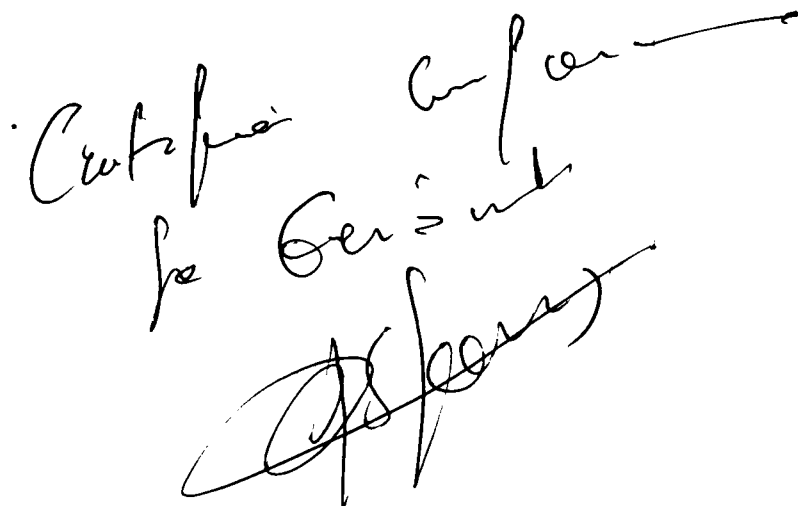 Certifié conforme
le Gérant